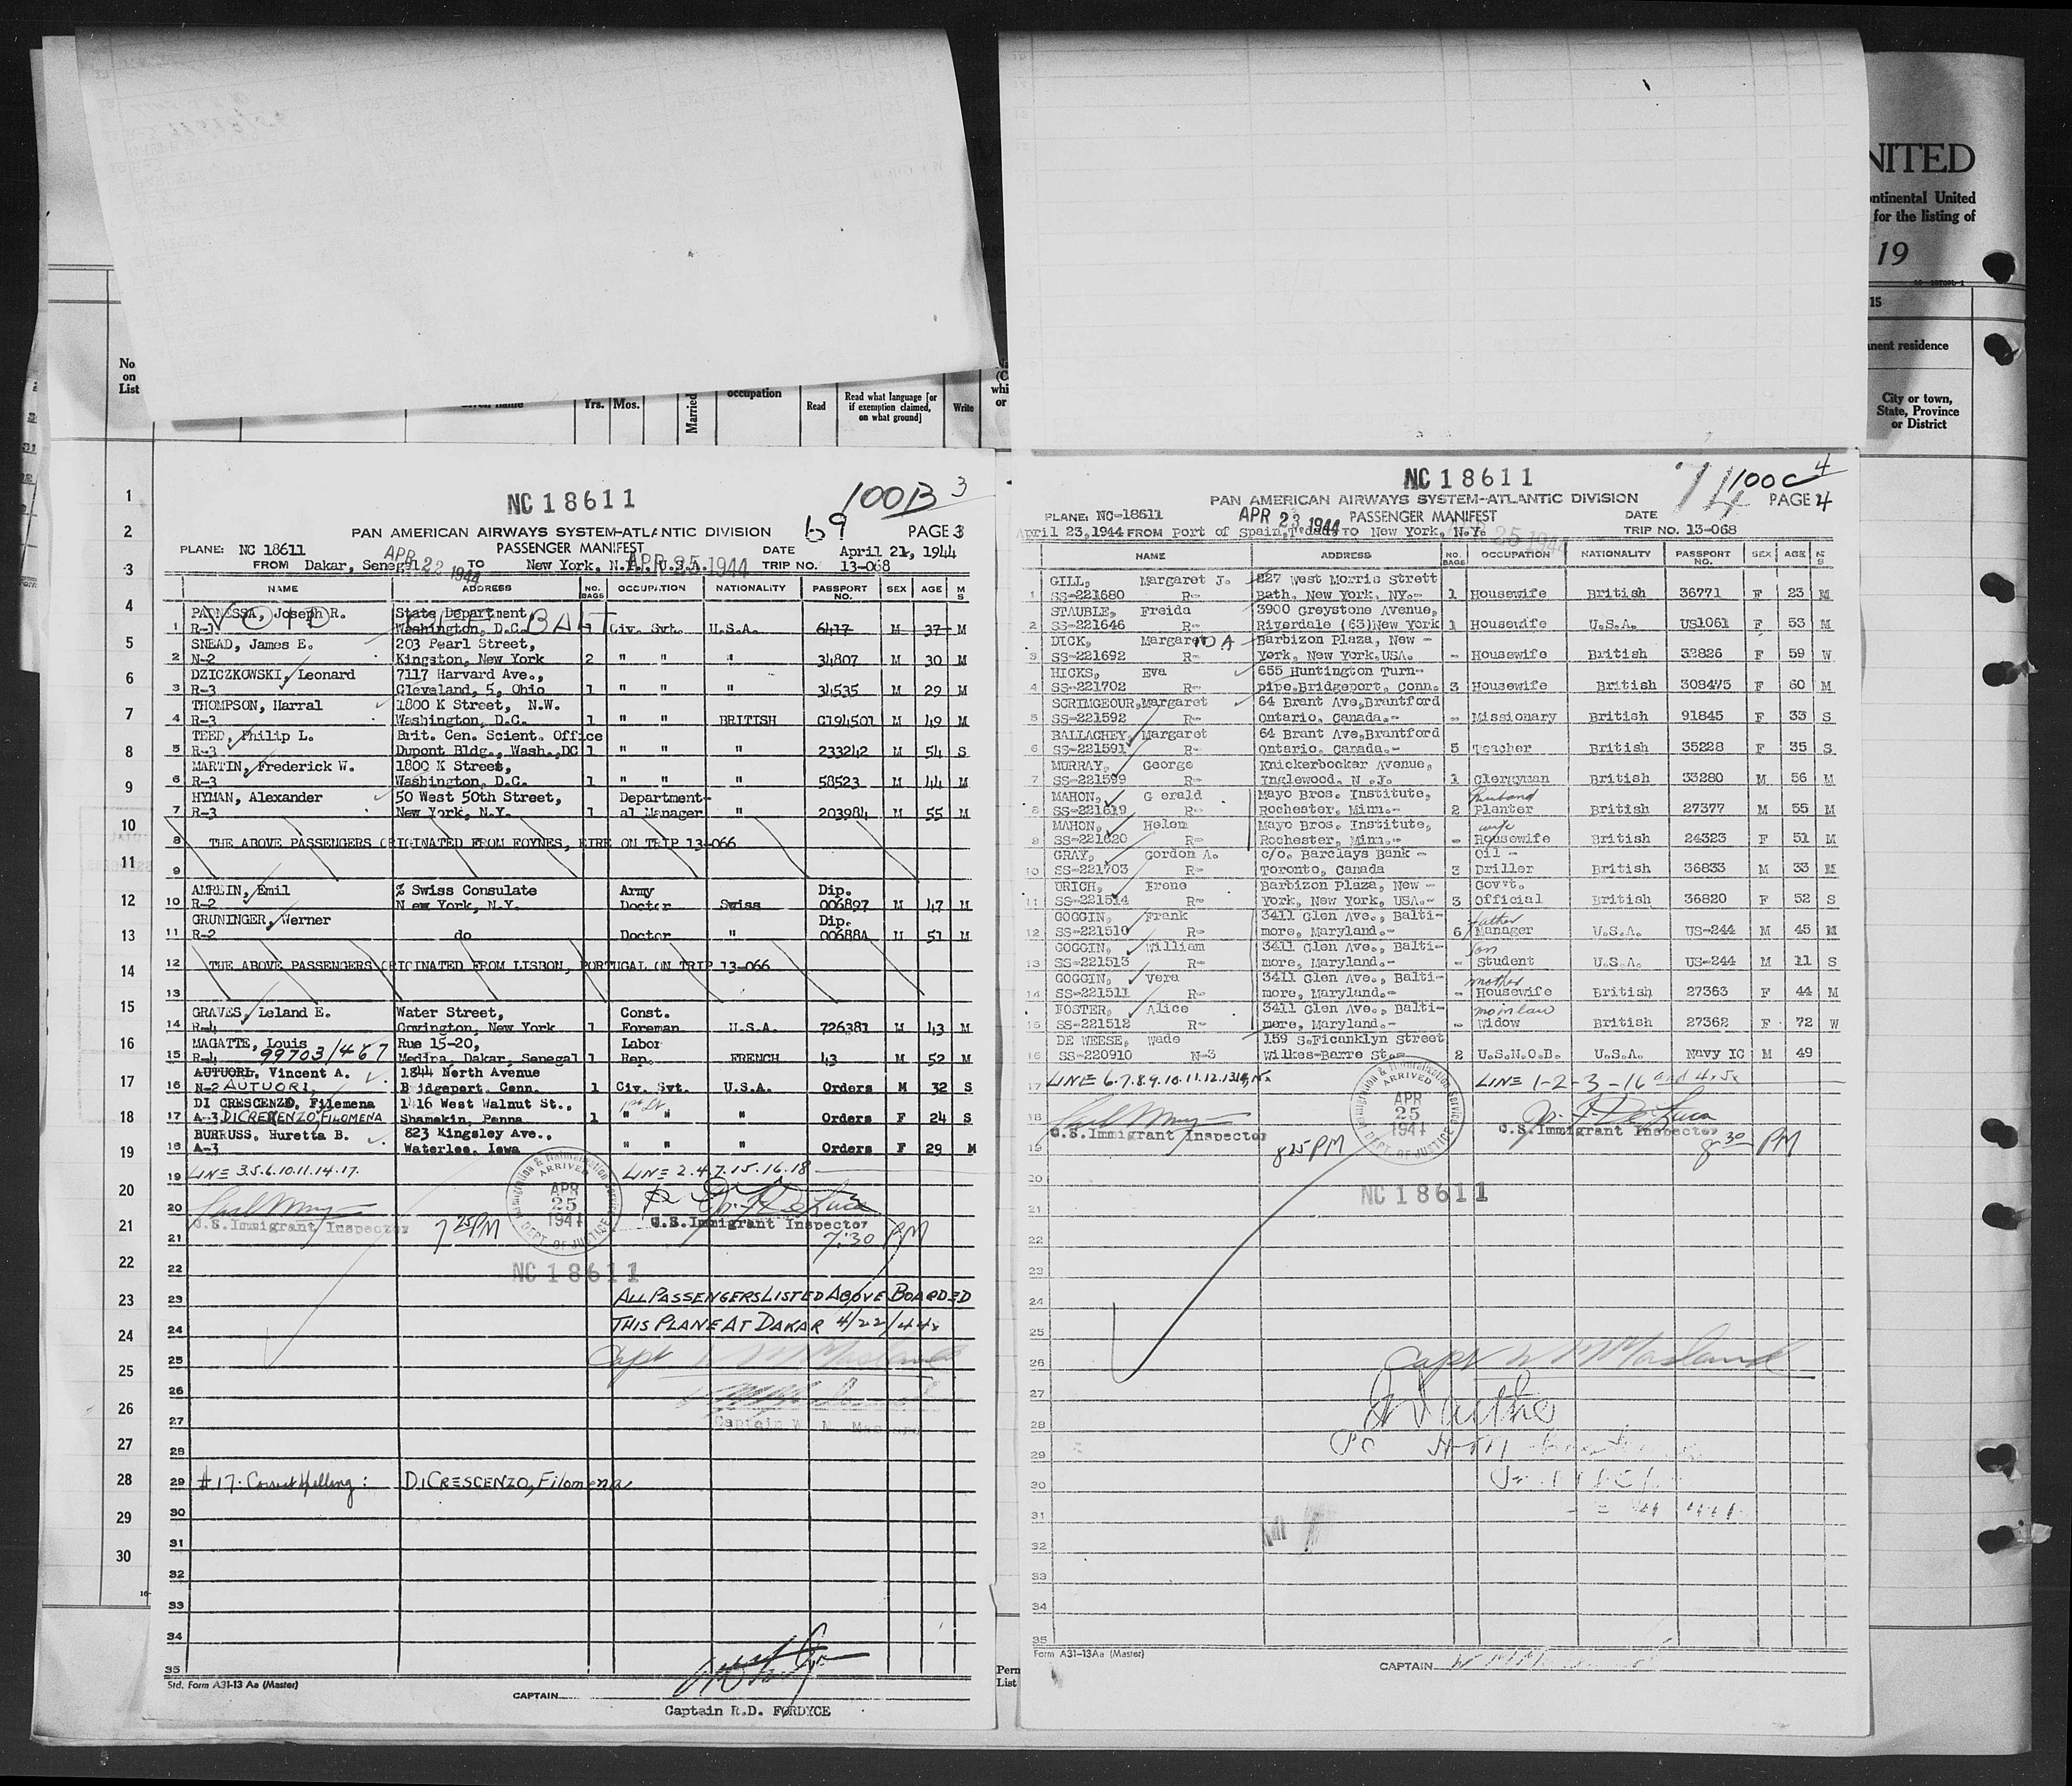 NITED
ontinental United
for the listing of
19
15
nent residence
City or town,
State, Province
or District
No
on
List
Yrs. Mos.
Married
occupation
Read
Read what language [or
if exemption claimed,
on what ground]
Write
1
2
3
4
5
6
7
8
9
10
11
12
13
14
15
16
17
18
19
20
21
22
23
24
25
26
26
27
28
29
30
NC 18611
100B 3
69
PAN AMERICAN AIRWAYS SYSTEM-ATLANTIC DIVISION PAGE 3
PLANE: NC 18611 PASSENGER MANIFEST DATE April 21, 1944
FROM Dakar, Senegal TO New York, N.Y., U.S.A. TRIP NO. 13-068
APR 22 1944
APR 25 1944
NAME ADDRESS NO. BAGS OCCUPATION NATIONALITY PASSPORT NO. SEX AGE M S
Joseph R. State Department
1 R-3 Washington, D.C. 1 Civ. Svt. U.S.A. 6417 M 37 M
VOID
SNEAD, James E. 203 Pearl Street,
2 N-2 Kingston, New York 2 " " " 34807 M 30 M
DZICZKOWSKI, Leonard 7117 Harvard Ave.,
3 R-3 Cleveland, 5, Ohio 1 " " " 34535 M 29 M
THOMPSON, Harral 1800 K Street, N.W.
4 R-3 Washington, D.C. 1 " " BRITISH C194501 M 49 M
TEED, Philip L. Brit. Cen. Scient. Office
5 R-3 Dupont Bldg., Wash.,DC 1 " " " 233242 M 54 S
MARTIN, Frederick W. 1800 K Street,
6 R-3 Washington, D.C. 1 " " " 58523 M 44 M
HYMAN, Alexander 50 West 50th Street, Department-
7 R-3 New York, N.Y. 1 al Manager " 203984 M 55 M
8 THE ABOVE PASSENGERS ORIGINATED FROM FOYNES, EIRE ON TRIP 13-066
9
AMREIN, Emil % Swiss Consulate Army Dip.
10 R-2 N ew York, N.Y. Doctor Swiss 006897 M 47 M
GRUNINGER, Werner Dip.
11 R-2 do Doctor " 00688A M 51 M
12 THE ABOVE PASSENGERS ORIGINATED FROM LISBON, PORTUGAL ON TRIP 13-066
13
GRAVES, Leland E. Water Street, Const.
14 R-4 Covington, New York 1 Foreman U.S.A. 726381 M 43 M
MAGATTE, Louis Rue 15-20, Labor
15 R-4 99703/467 Medina, Dakar, Senegal 1 Rep. FRENCH 43 M 52 M
AUTUORL, Vincent A. 1844 North Avenue
16 N-2 AUTUORI, Bridgeport, Conn. 1 Civ. Svt. U.S.A. Orders M 32 S
DI CRESCENZO, Filemena 1416 West Walnut St.,
17 A-3 DICRESCENZO, FILOMENA Shamokin, Penna 1 " " " Orders F 24 S
BURRUSS, Huretta B. 823 Kingsley Ave.,
18 A-3 Waterloo, Iowa " " " Orders F 29 M
19 LINE 3.5.6.10.11.14.17. LINE 2.4.7.15.16.18
20
U.S. Immigrant Inspector 7 25 PM U.S. Immigrant Inspector
21 7:30 PM
Immigration & Naturalization Service
ARRIVED
APR
25
1944
DEPT. OF JUSTICE
22 NC 18611
23 ALL PASSENGERS LISTED ABOVE BOARDED
24 THIS PLANE AT DAKAR 4/22/44
25 Capt W M Masland
26
27 Captain W. M. Masland
28
29 #17. Correct spelling: DICRESCENZO, Filomena
30
31
32
33
34
35
Std. Form A31-13 Aa (Master)
CAPTAIN
Captain R.D. FORDYCE
Pern
List
NC 18611
74 100C 4
PAN AMERICAN AIRWAYS SYSTEM-ATLANTIC DIVISION PAGE 4
PLANE: NC-18611 APR 23 1944 PASSENGER MANIFEST DATE
April 23,1944 FROM Port of Spain,T'dad, TO New York, N.Y. TRIP NO. 13-068
APR 25 1944
NAME ADDRESS NO. BAGS OCCUPATION NATIONALITY PASSPORT NO. SEX AGE M S
GILL, Margaret J. 227 West Morris Strett
1 SS-221680 R- Bath, New York, NY.- 1 Housewife British 36771 F 23 M
STAUBLE, Freida 3900 Greystone Avenue,
2 SS-221646 R- Riverdale (63)New York 1 Housewife U.S.A. US1061 F 53 M
DICK, Margaret Barbizon Plaza, New -
3 SS-221692 R- York, New York,USA. - Housewife British 32826 F 59 W
HICKS, Eva 655 Huntington Turn-
4 SS-221702 R- pipe.Bridgeport, Conn. 3 Housewife British 308475 F 60 M
SCRIMGEOUR, Margaret 64 Brant Ave,Brantford
5 SS-221592 R- Ontario, Canada.- - Missionary British 91845 F 33 S
BALLACHEY, Margaret 64 Brant Ave,Brantford
6 SS-221591 R- Ontario. Canada.- 5 Teacher British 35228 F 35 S
MURRAY, George Knickerbocker Avenue,
7 SS-221599 R- Inglewood, N.J. 1 Clergyman British 33280 M 56 M
MAHON, G erald Mayo Bros. Institute, Husband
8 SS-221619 R- Rochester, Minn.- 2 Planter British 27377 M 55 M
MAHON, Helen Mayo Bros. Institute, wife
9 SS-221620 R- Rochester, Minn.- - Housewife British 24323 F 51 M
GRAY, Gordon A. c/o. Barclays Bank - Oil -
10 SS-221703 R- Toronto, Canada 3 Driller British 36833 M 33 M
URICH, Irene Barbizon Plaza, New - Govvt.
11 SS-221514 R- York, New York, USA.- 3 Official British 36820 F 52 S
GOGGIN, Frank 3411 Glen Ave., Balti- father
12 SS-221510 R- more, Maryland.- 6 Manager U.S.A. US-244 M 45 M
GOGGIN, William 3411 Glen Ave., Balti- son
13 SS-221513 R- more, Maryland.- - Student U.S.A. US-244 M 11 S
GOGGIN, Vera 3411 Glen Ave., Balti- mother
14 SS-221511 R- more, Maryland.- - Housewife British 27363 F 44 M
FOSTER, Alice 3411 Glen Ave., Balti- mo in law
15 SS-221512 R- more, Maryland.- - Widow British 27362 F 72 W
DE WEESE, Wade 159 S.Ficanklyn Street
16 SS-220910 N-3 Wilkes-Barre St.- 2 U.S.N.O.B. U.S.A. Navy IC M 49
17 LINE 6.7.8.9.10.11.12.13.14.15. LINE 1-2-3-16 and 4.5
18
U.S. Immigrant Inspector U.S. Immigrant Inspector
19 8 25 PM 8 30 PM
Immigration & Naturalization Service
ARRIVED
APR
25
1944
DEPT. OF JUSTICE
20 NC 18611
21
22
23
24
25
26 Capt W M Masland
27
28
29
30
31
32
33
34
35
Form A31-13Aa (Master)
CAPTAIN